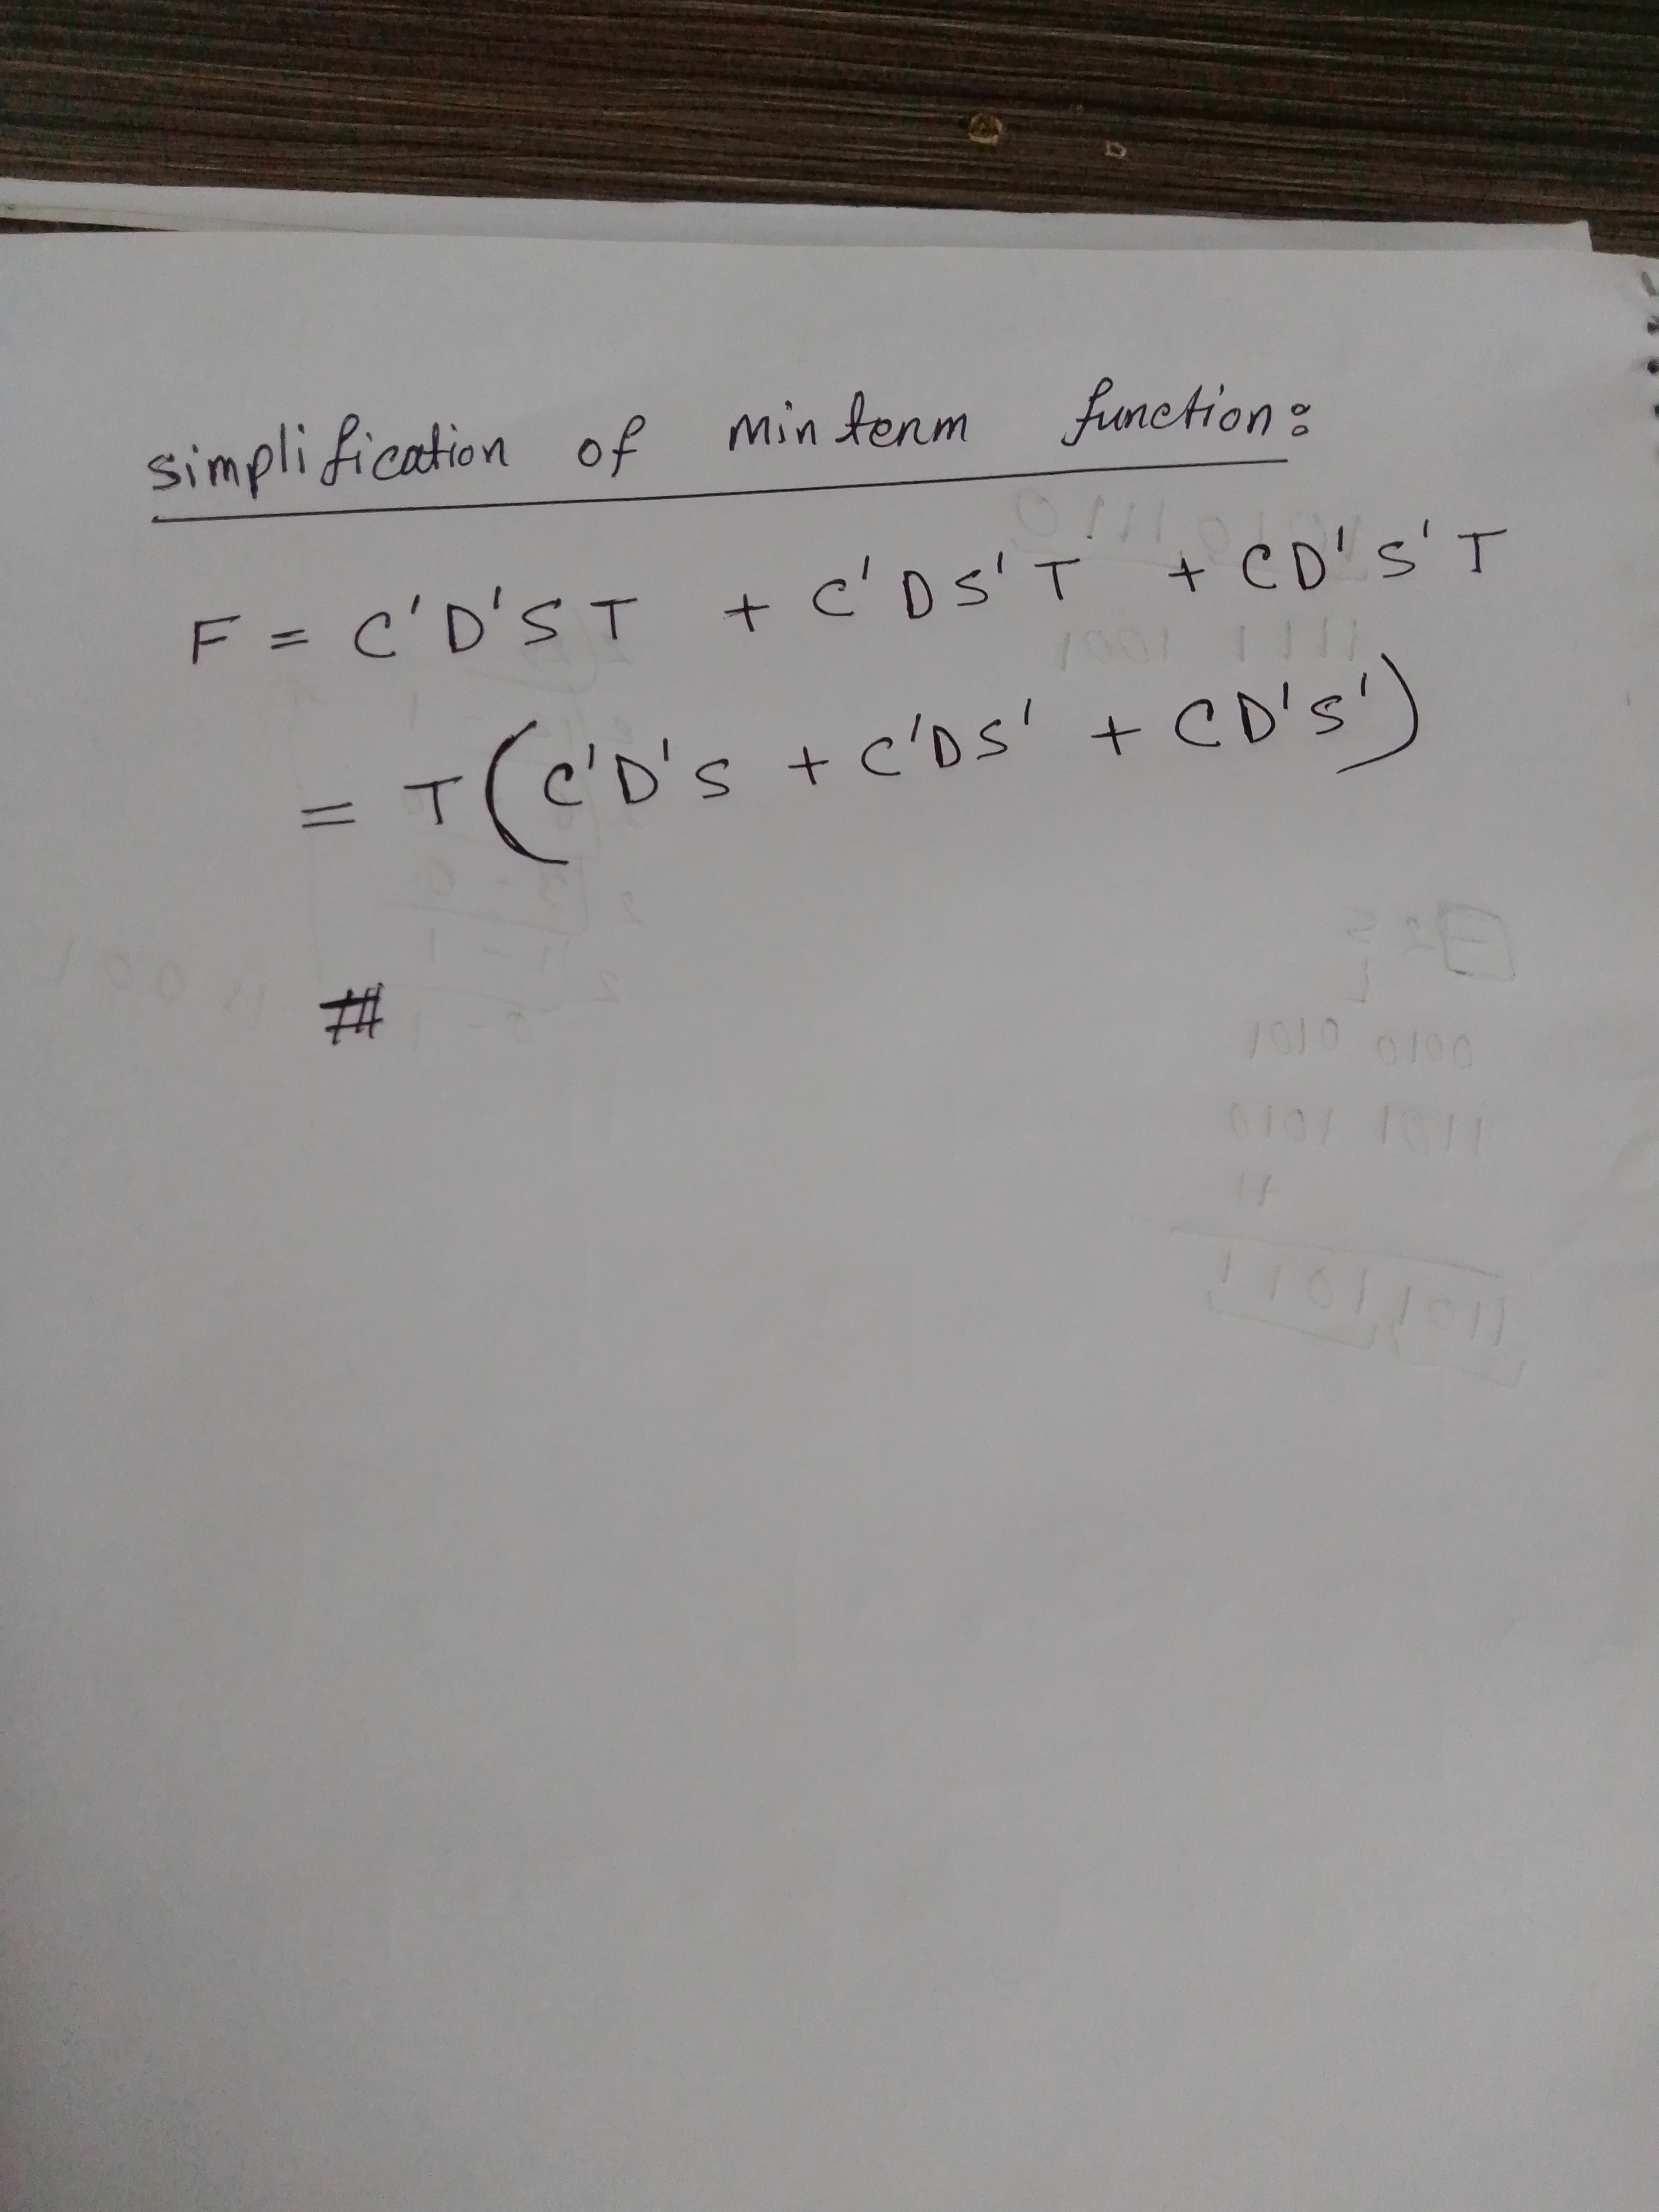 simplification of minterm function:
F = C'D'ST + C'DS'T + CD'S'T
= T(C'D'S + C'DS' + CD'S')
#